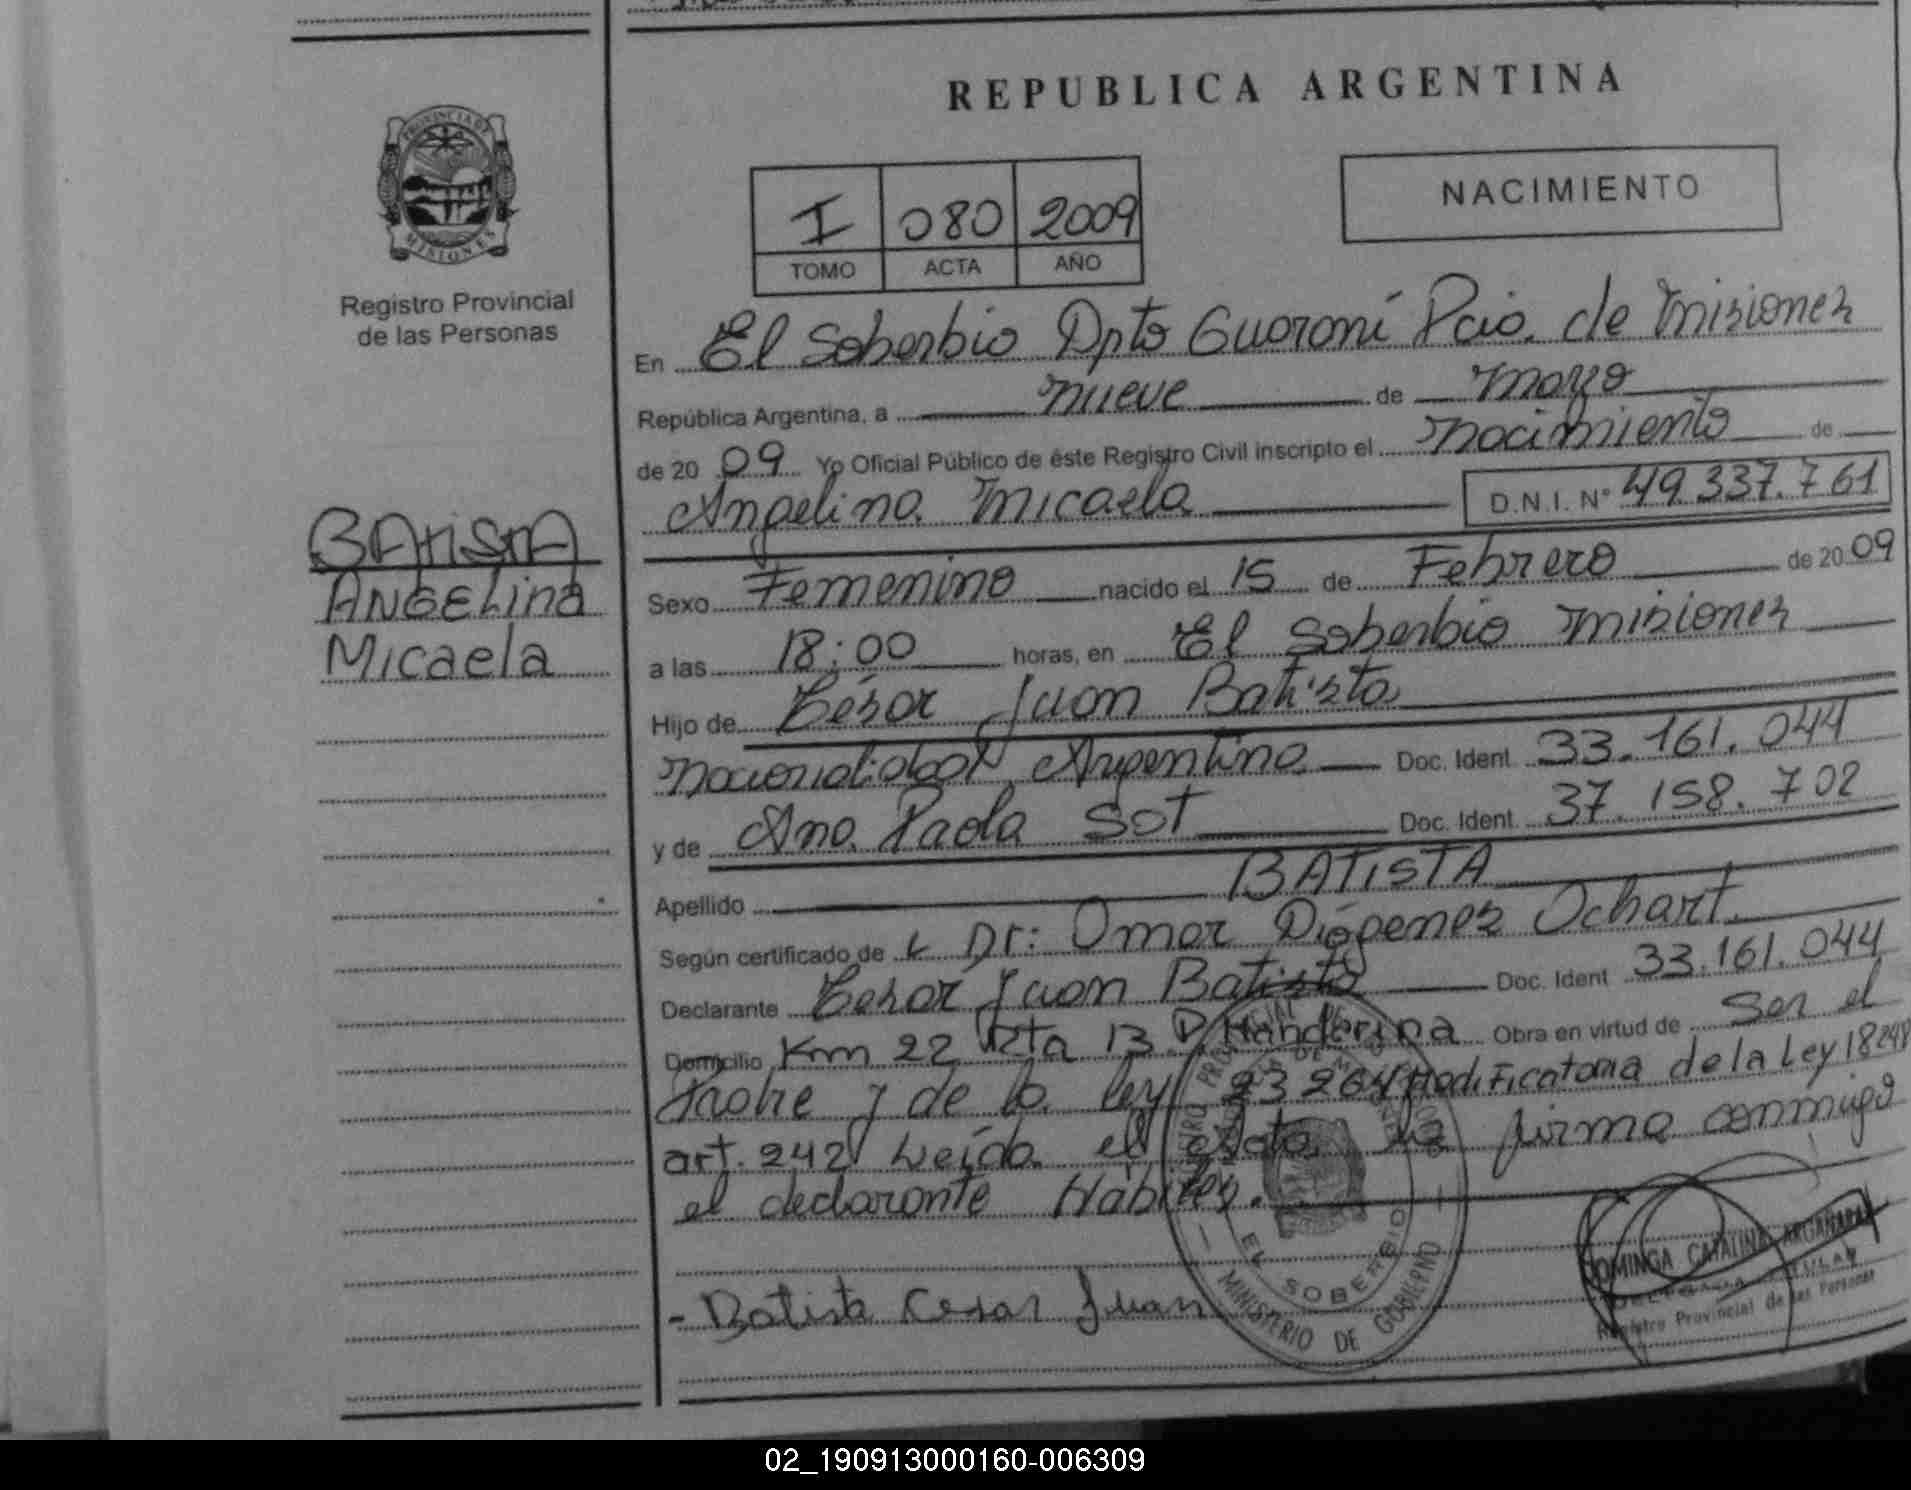 REPUBLICA ARGENTINA
PROVINCIA DE
MISIONES
Registro Provincial
de las Personas
I 080 2009
TOMO ACTA AÑO
NACIMIENTO
En El Soberbio Dpto Guaraní Pcia. de Misiones
República Argentina, a nueve de mayo
de 20 09 Yo Oficial Público de éste Registro Civil inscripto el nacimiento de
Angelina Micaela D.N.I. N° 49.337.761
BAtistA
ANGELina
Micaela
Sexo Femenino nacido el 15 de Febrero de 20 09
a las 18:00 horas, en El Soberbio Misiones
Hijo de César Juan Batista
nacionalidad Argentina Doc. Ident. 33.161.044
y de Ana Paola Sot Doc. Ident. 37.158.702
Apellido BATISTA
Según certificado de Dr: Omar Diógenes Ochart.
Declarante Cesar Juan Batista Doc. Ident 33.161.044
Domicilio Km 22 Rta 13 Obra en virtud de Ser el
Padre y de la ley 23264 Modificatoria de la Ley 18248
art. 242 Leída el Acta la firma conmigo
el declarante Hábiles.
- Batista Cesar Juan
EL SOBERBIO
MINISTERIO DE GOBIERNO
DOMINGA CATALINA ARGAÑARAZ
Registro Provincial de las Personas
02_190913000160-006309